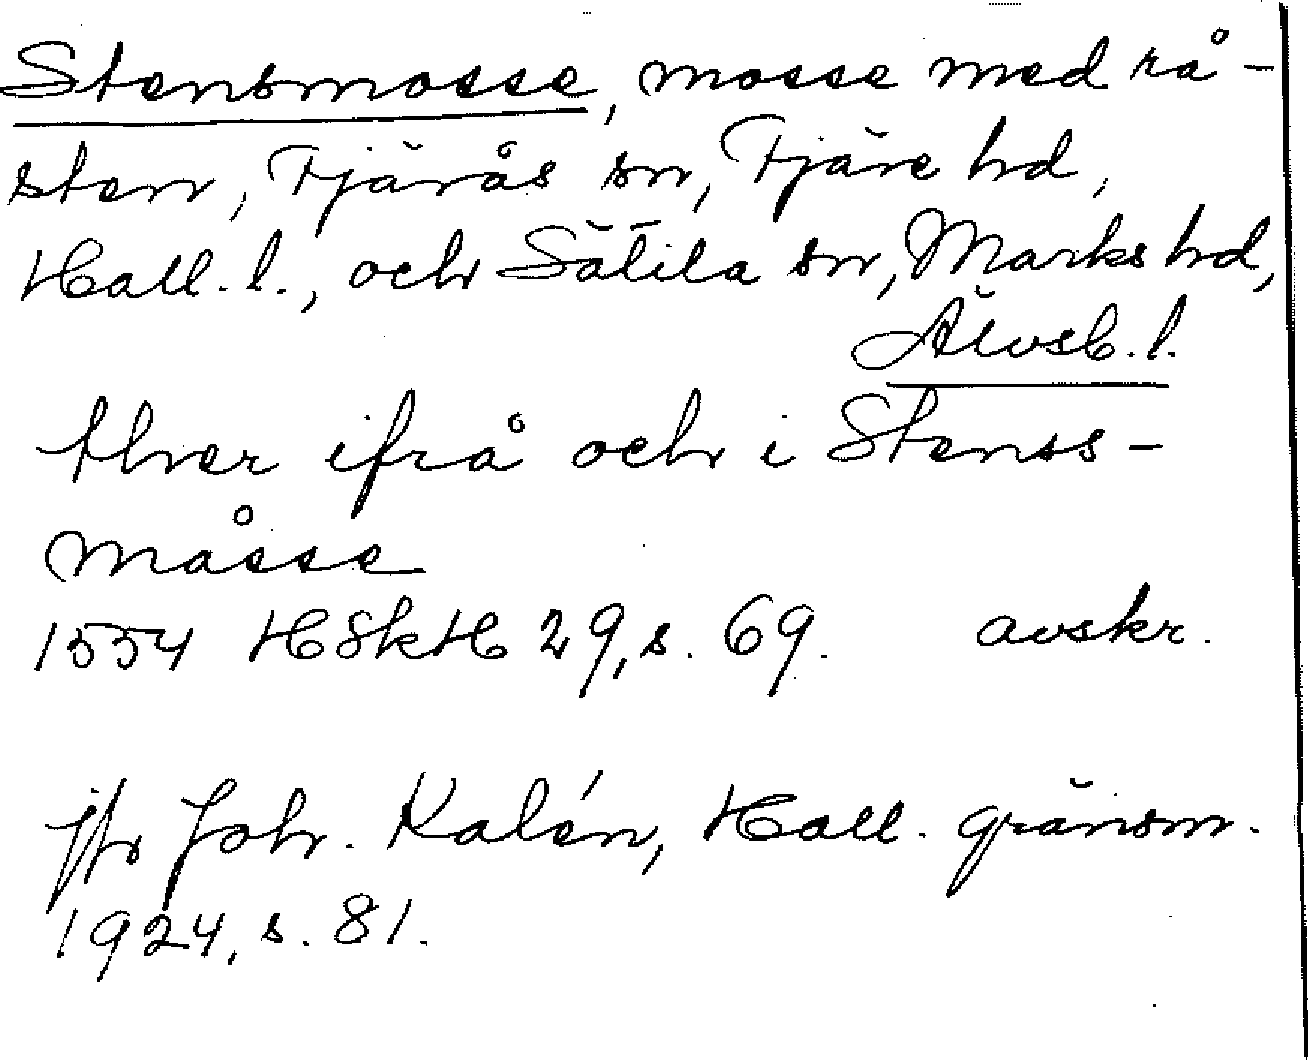 Stensmosse, mosse med rå-
sten, Tjärås sn, Fjäre hd,
Hall. l., och Sätila sn, Marks hd,
Älvsb. l.
thver ifrå och i Stenss-
måsse
1554 HSkH 29, s. 69. avskr.
jfr Joh. Kalén, Hall. gränsm.
1924, s. 81.